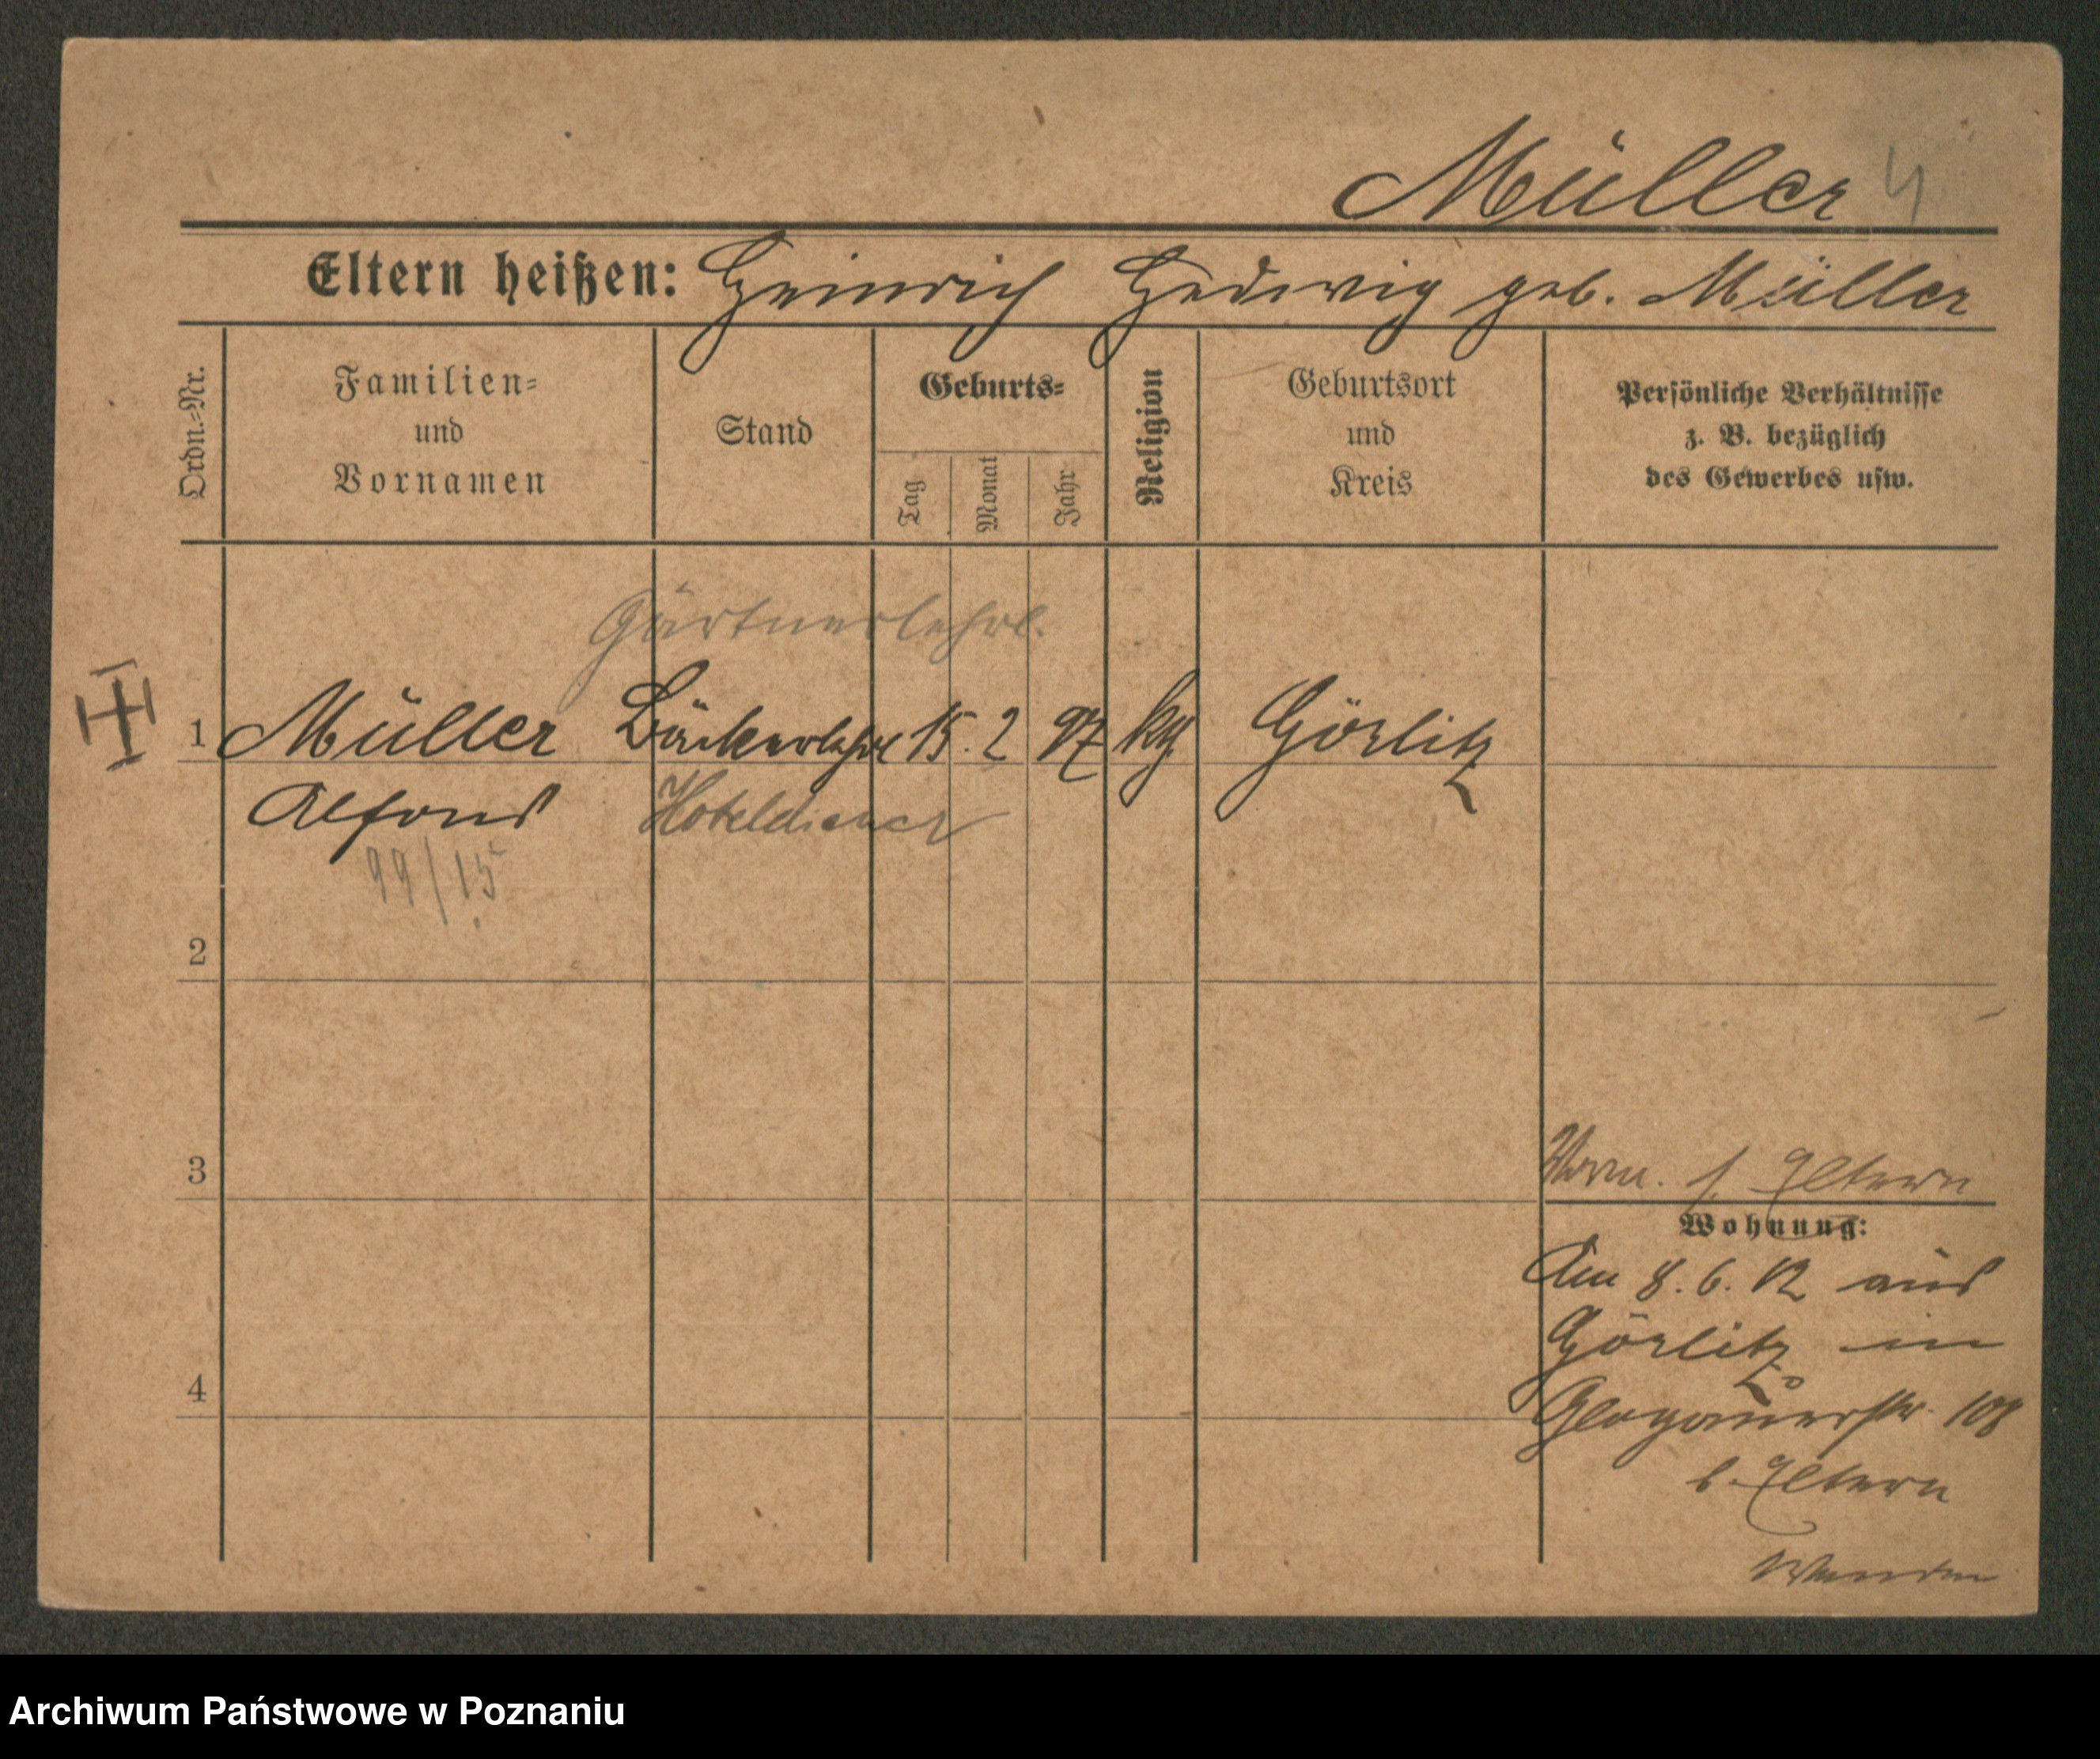 Müller 4
Eltern heißen: Heinrich Hedwig geb. Müller
Ordn.-Nr.
Familien-
und
Vornamen
Stand
Geburts-
Tag
Monat
Jahr
Religion
Geburtsort
und
Kreis
Persönliche Verhältnisse
z. B. bezüglich
des Gewerbes usw.
Gärtnerlehrl.
1 Müller Bäckerlehrl 15. 2 97 kg Görlitz
Alfons Hoteldiener
99/15
2
3
s. Eltern
Wohnung:
Am 8. 6. 12 aus
Görlitz in
4
Glogauerstr. 108
b. Eltern
Wenden
Archiwum Państwowe w Poznaniu